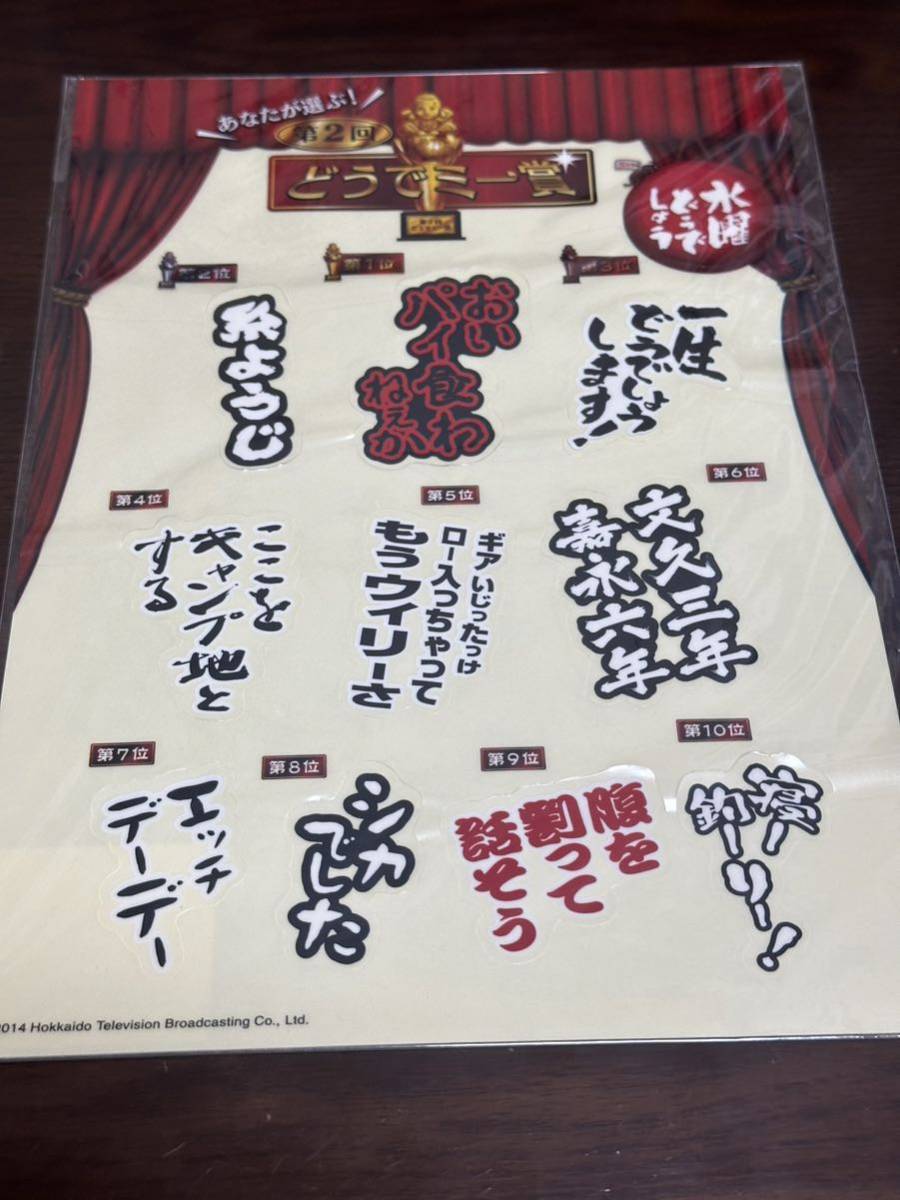 あなたが選ぶ!
第2回
どうでミー賞
水曜
どうで
しょう
第2位
糸ようじ
第1位
おい
パイ食わ
ねぇか
第3位
一生
どうでしょう
します!
第4位
ここを
キャンプ地と
する
第5位
ギアいじったっけ
ロー入っちゃって
もうウィリーさ
第6位
文久三年
嘉永六年
第7位
エッチ
デーデー
第8位
シカ
でした
第9位
腹を
割って
話そう
第10位
寝ー
釣ーりー!
2014 Hokkaido Television Broadcasting Co., Ltd.